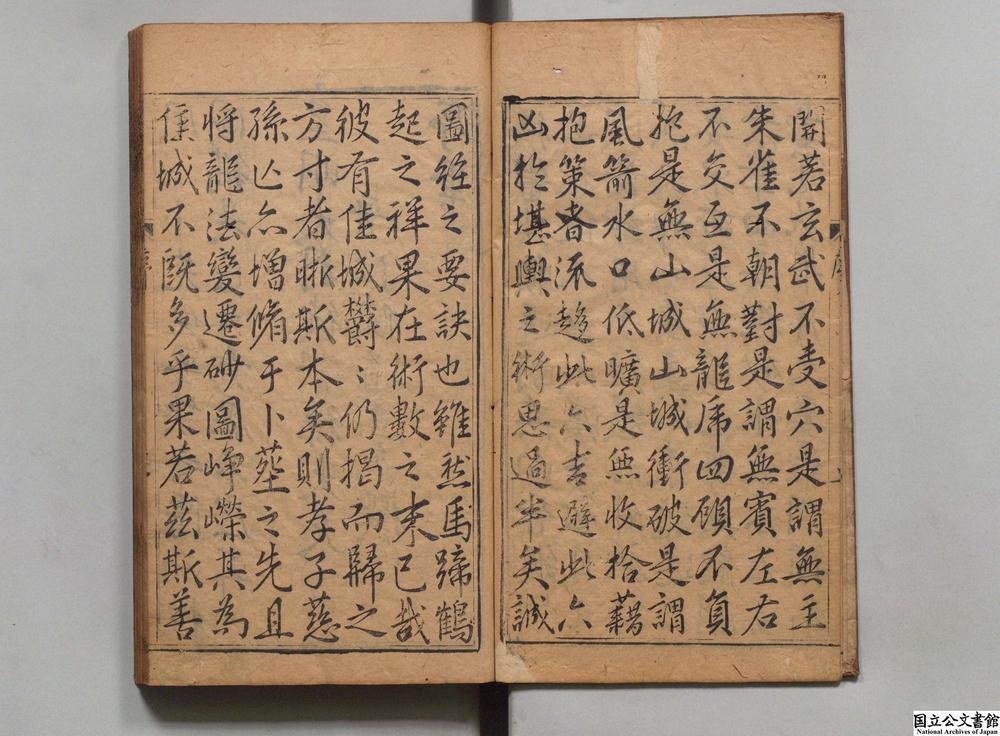 開若玄武不受穴是謂無主
朱雀不朝對是謂無賓左右
不交互是無龍虎四顧不負
抱是無山城山城衝破是謂
風箭水口低曠是無收拾藉
抱策者流趨此六吉避此六
凶於堪輿之術思過半矣誠
圖經之要訣也雖然馬蹄鶴
起之祥果在術數之末已哉
彼有佳城欝〻仍揭而歸之
方寸者晰斯本矣則孝子慈
孫亾亦增脩于卜塟之先且
將龍法變遷砂圖崢嶸其為
佳城不既多乎果若茲斯善
序
国立公文書館
National Archives of Japan